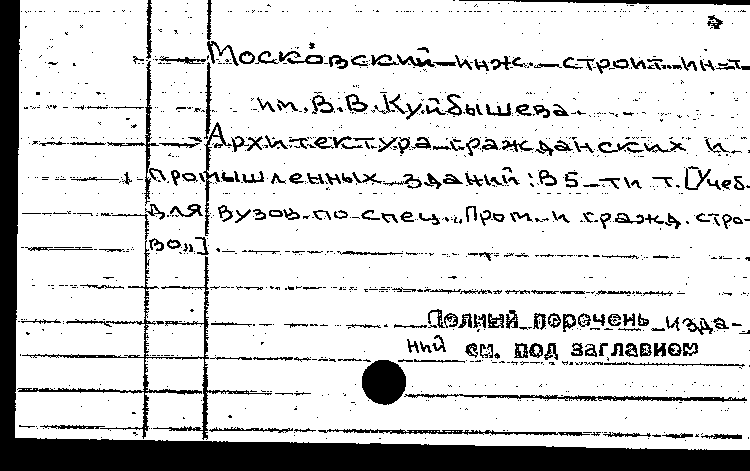 Московский инж. строит. ин-т
им. В.В. Куйбышева.
Архитектура гражданских и
промышленных зданий: В 5-ти т. [Учеб.
для вузов по спец. „Пром. и гражд. стро-
во„].
Полный перечень изда-
ний см. под заглавием